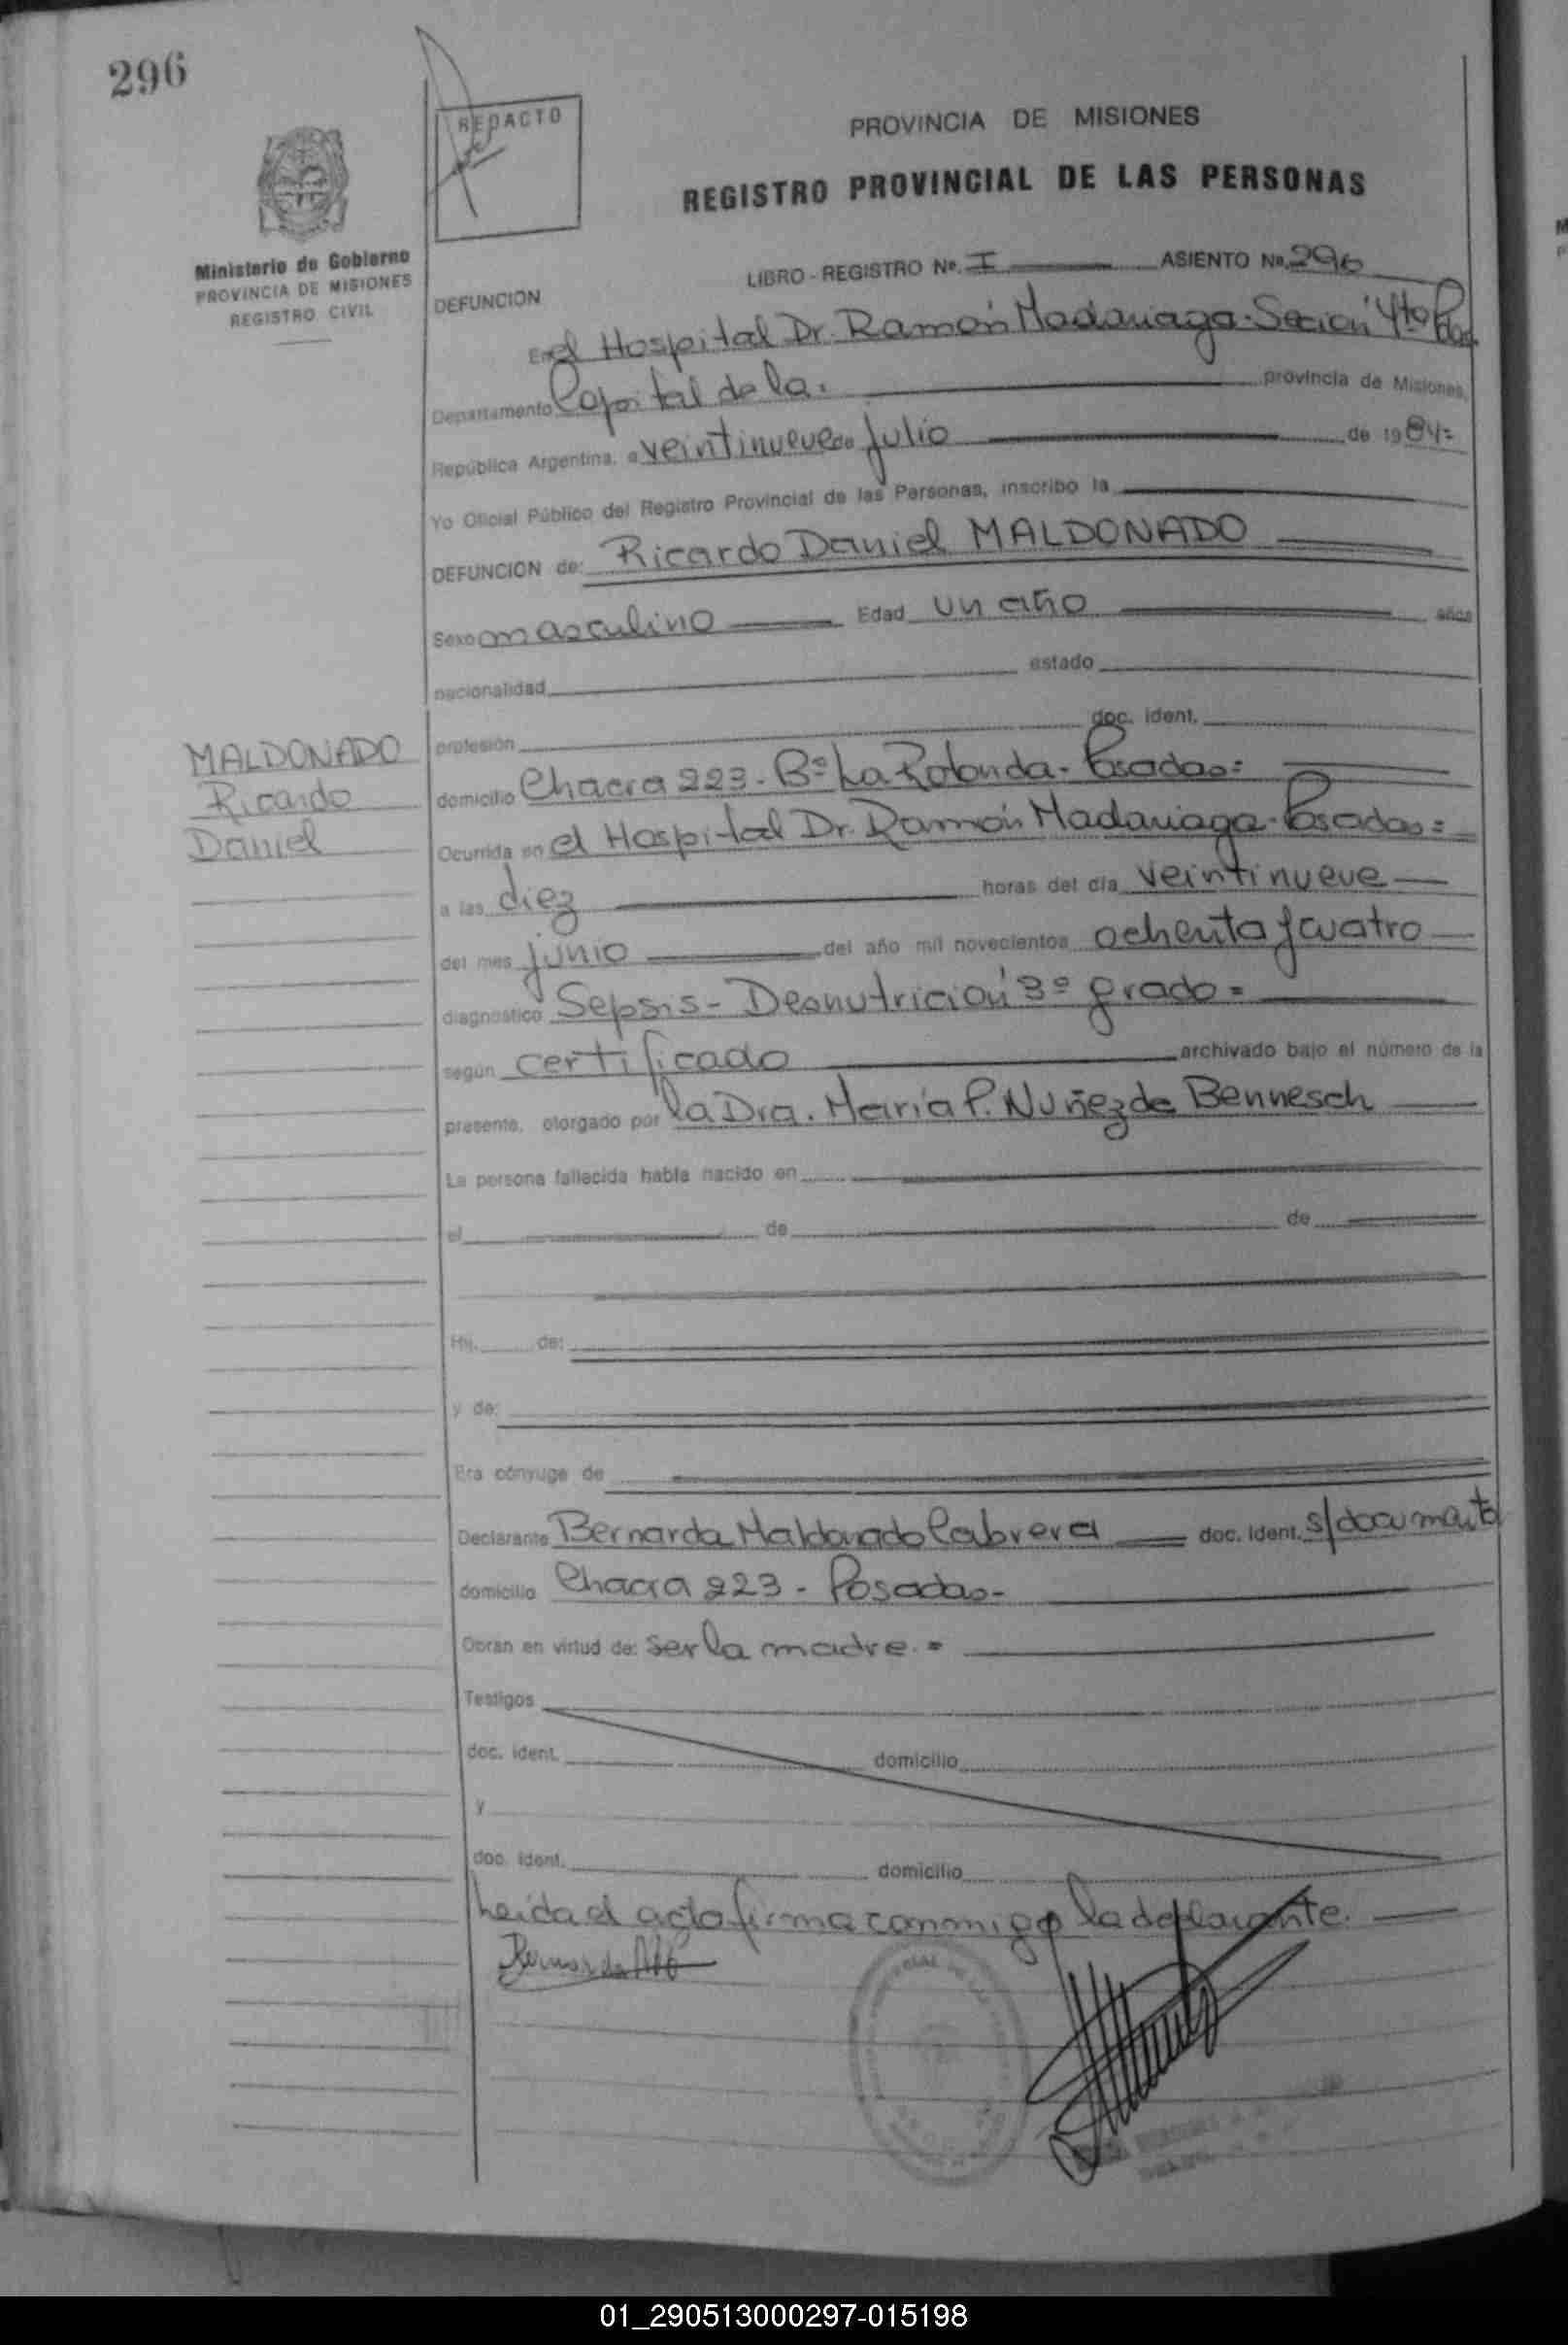 296
REDACTO
PROVINCIA DE MISIONES
REGISTRO PROVINCIAL DE LAS PERSONAS
Ministerio de Gobierno
PROVINCIA DE MISIONES
REGISTRO CIVIL
LIBRO - REGISTRO Nº. I ASIENTO Nº. 296
DEFUNCION
En el Hospital Dr. Ramón Madariaga. Seción 4to
Departamento Capital de la. provincia de Misiones,
República Argentina, a veintinueve de Julio de 1984=
Yo Oficial Público del Registro Provincial de las Personas, inscribo la
DEFUNCION de: Ricardo Daniel MALDONADO
Sexo masculino Edad un año años
nacionalidad estado
profesión doc. ident.
MALDONADO
Ricardo
Daniel
domicilio Chacra 223 - Bº La Rotonda - Posadas=
Ocurrida en el Hospital Dr. Ramón Madariaga - Posadas=
a las diez horas del día veintinueve
del mes junio del año mil novecientos ochenta y cuatro
diagnostico Sepsis - Desnutrición 3º grado =
según certificado archivado bajo el número de la
presente, otorgado por la Dra. María P. Nuñez de Bennesch
La persona fallecida habia nacido en
el de de
Hij de:
y de:
Era cónyuge de
Declarante Bernarda Maldonado Cabrera doc. ident. s/documento
domicilio Chacra 223 - Posadas-
Obran en virtud de: ser la madre. =
Testigos
doc. ident. domicilio
y
doc. ident. domicilio
Leida el acta firma conmigo la declarante.
Bernarda
01_290513000297-015198